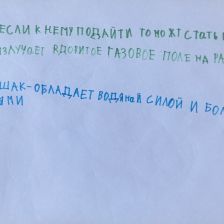 ЕСЛИ К НЕМУ ПОДАЙТИ ТО МОЖТ СТАТЬ
ИЗЛУЧАЕТ ЯДОВИТОЕ ГАЗОВОЕ ПОЛЕ НА РА
ШАК-ОБЛАДАЕТ ВОДЯНОЙ СИЛОЙ И БОЛ
ЯМИ